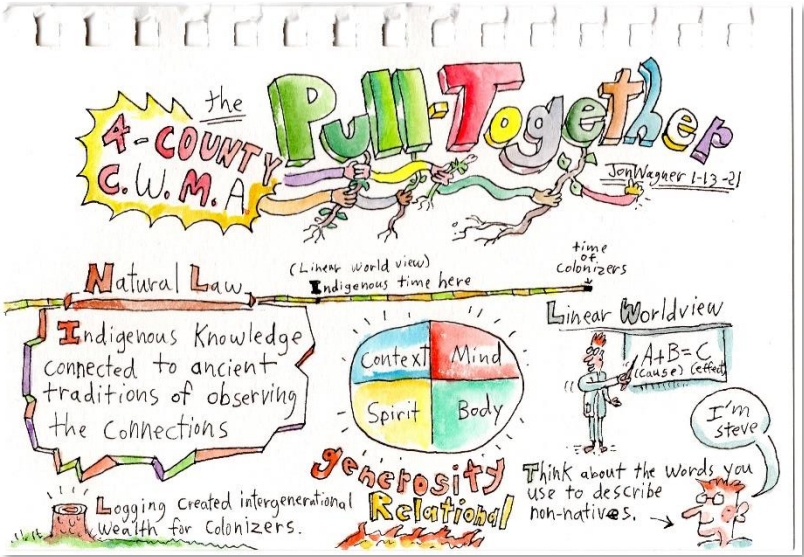 the
Pull-Together
4-COUNTY
C.W.M.A
JonWagner 1-13-21
Natural Law
(Linear world view)
Indigenous time here
time
of
Colonizers
Indigenous Knowledge
connected to ancient
traditions of observing
the Connections
Context Mind
Spirit Body
generosity
Relational
Linear Worldview
A+B=C
(cause) (effect)
I'm
steve
Think about the words you
use to describe
non-natives.
Logging Created intergenerational
wealth for Colonizers.